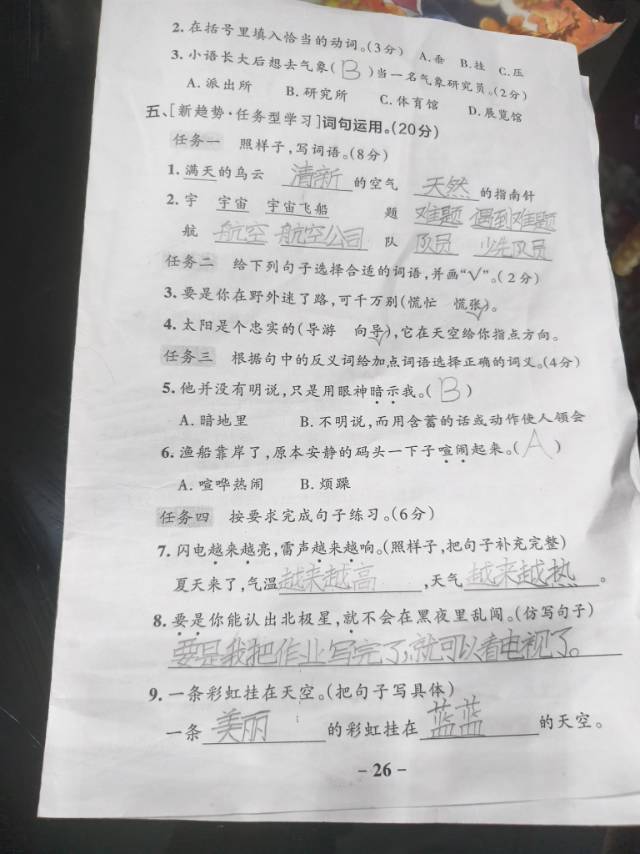 2. 在括号里填入恰当的动词。(3分) A. 垂 B. 挂 C. 压
3. 小语长大后想去气象( B )当一名气象研究员。(2分)
A. 派出所 B. 研究所 C. 体育馆 D. 展览馆
五、[新趋势·任务型学习]词句运用。(20分)
任务一 照样子,写词语。(8分)
1. 满天的乌云 清新 的空气 天然 的指南针
2. 宇 宇宙 宇宙飞船 题 难题 遇到难题
航 航空 航空公司 队 队员 少先队员
任务二 给下列句子选择合适的词语,并画“√”。(2分)
3. 要是你在野外迷了路,可千万别(慌忙 慌张√)。
4. 太阳是个忠实的(导游 向导√),它在天空给你指点方向。
任务三 根据句中的反义词给加点词语选择正确的词义。(4分)
5. 他并没有明说,只是用眼神暗示我。( B )
A. 暗地里 B. 不明说,而用含蓄的话或动作使人领会
6. 渔船靠岸了,原本安静的码头一下子喧闹起来。( A )
A. 喧哗热闹 B. 烦躁
任务四 按要求完成句子练习。(6分)
7. 闪电越来越亮,雷声越来越响。(照样子,把句子补充完整)
夏天来了,气温越来越高,天气越来越热。
8. 要是你能认出北极星,就不会在黑夜里乱闯。(仿写句子)
要是我把作业写完了,就可以看电视了。
9. 一条彩虹挂在天空。(把句子写具体)
一条 美丽 的彩虹挂在 蓝蓝 的天空。
- 26 -